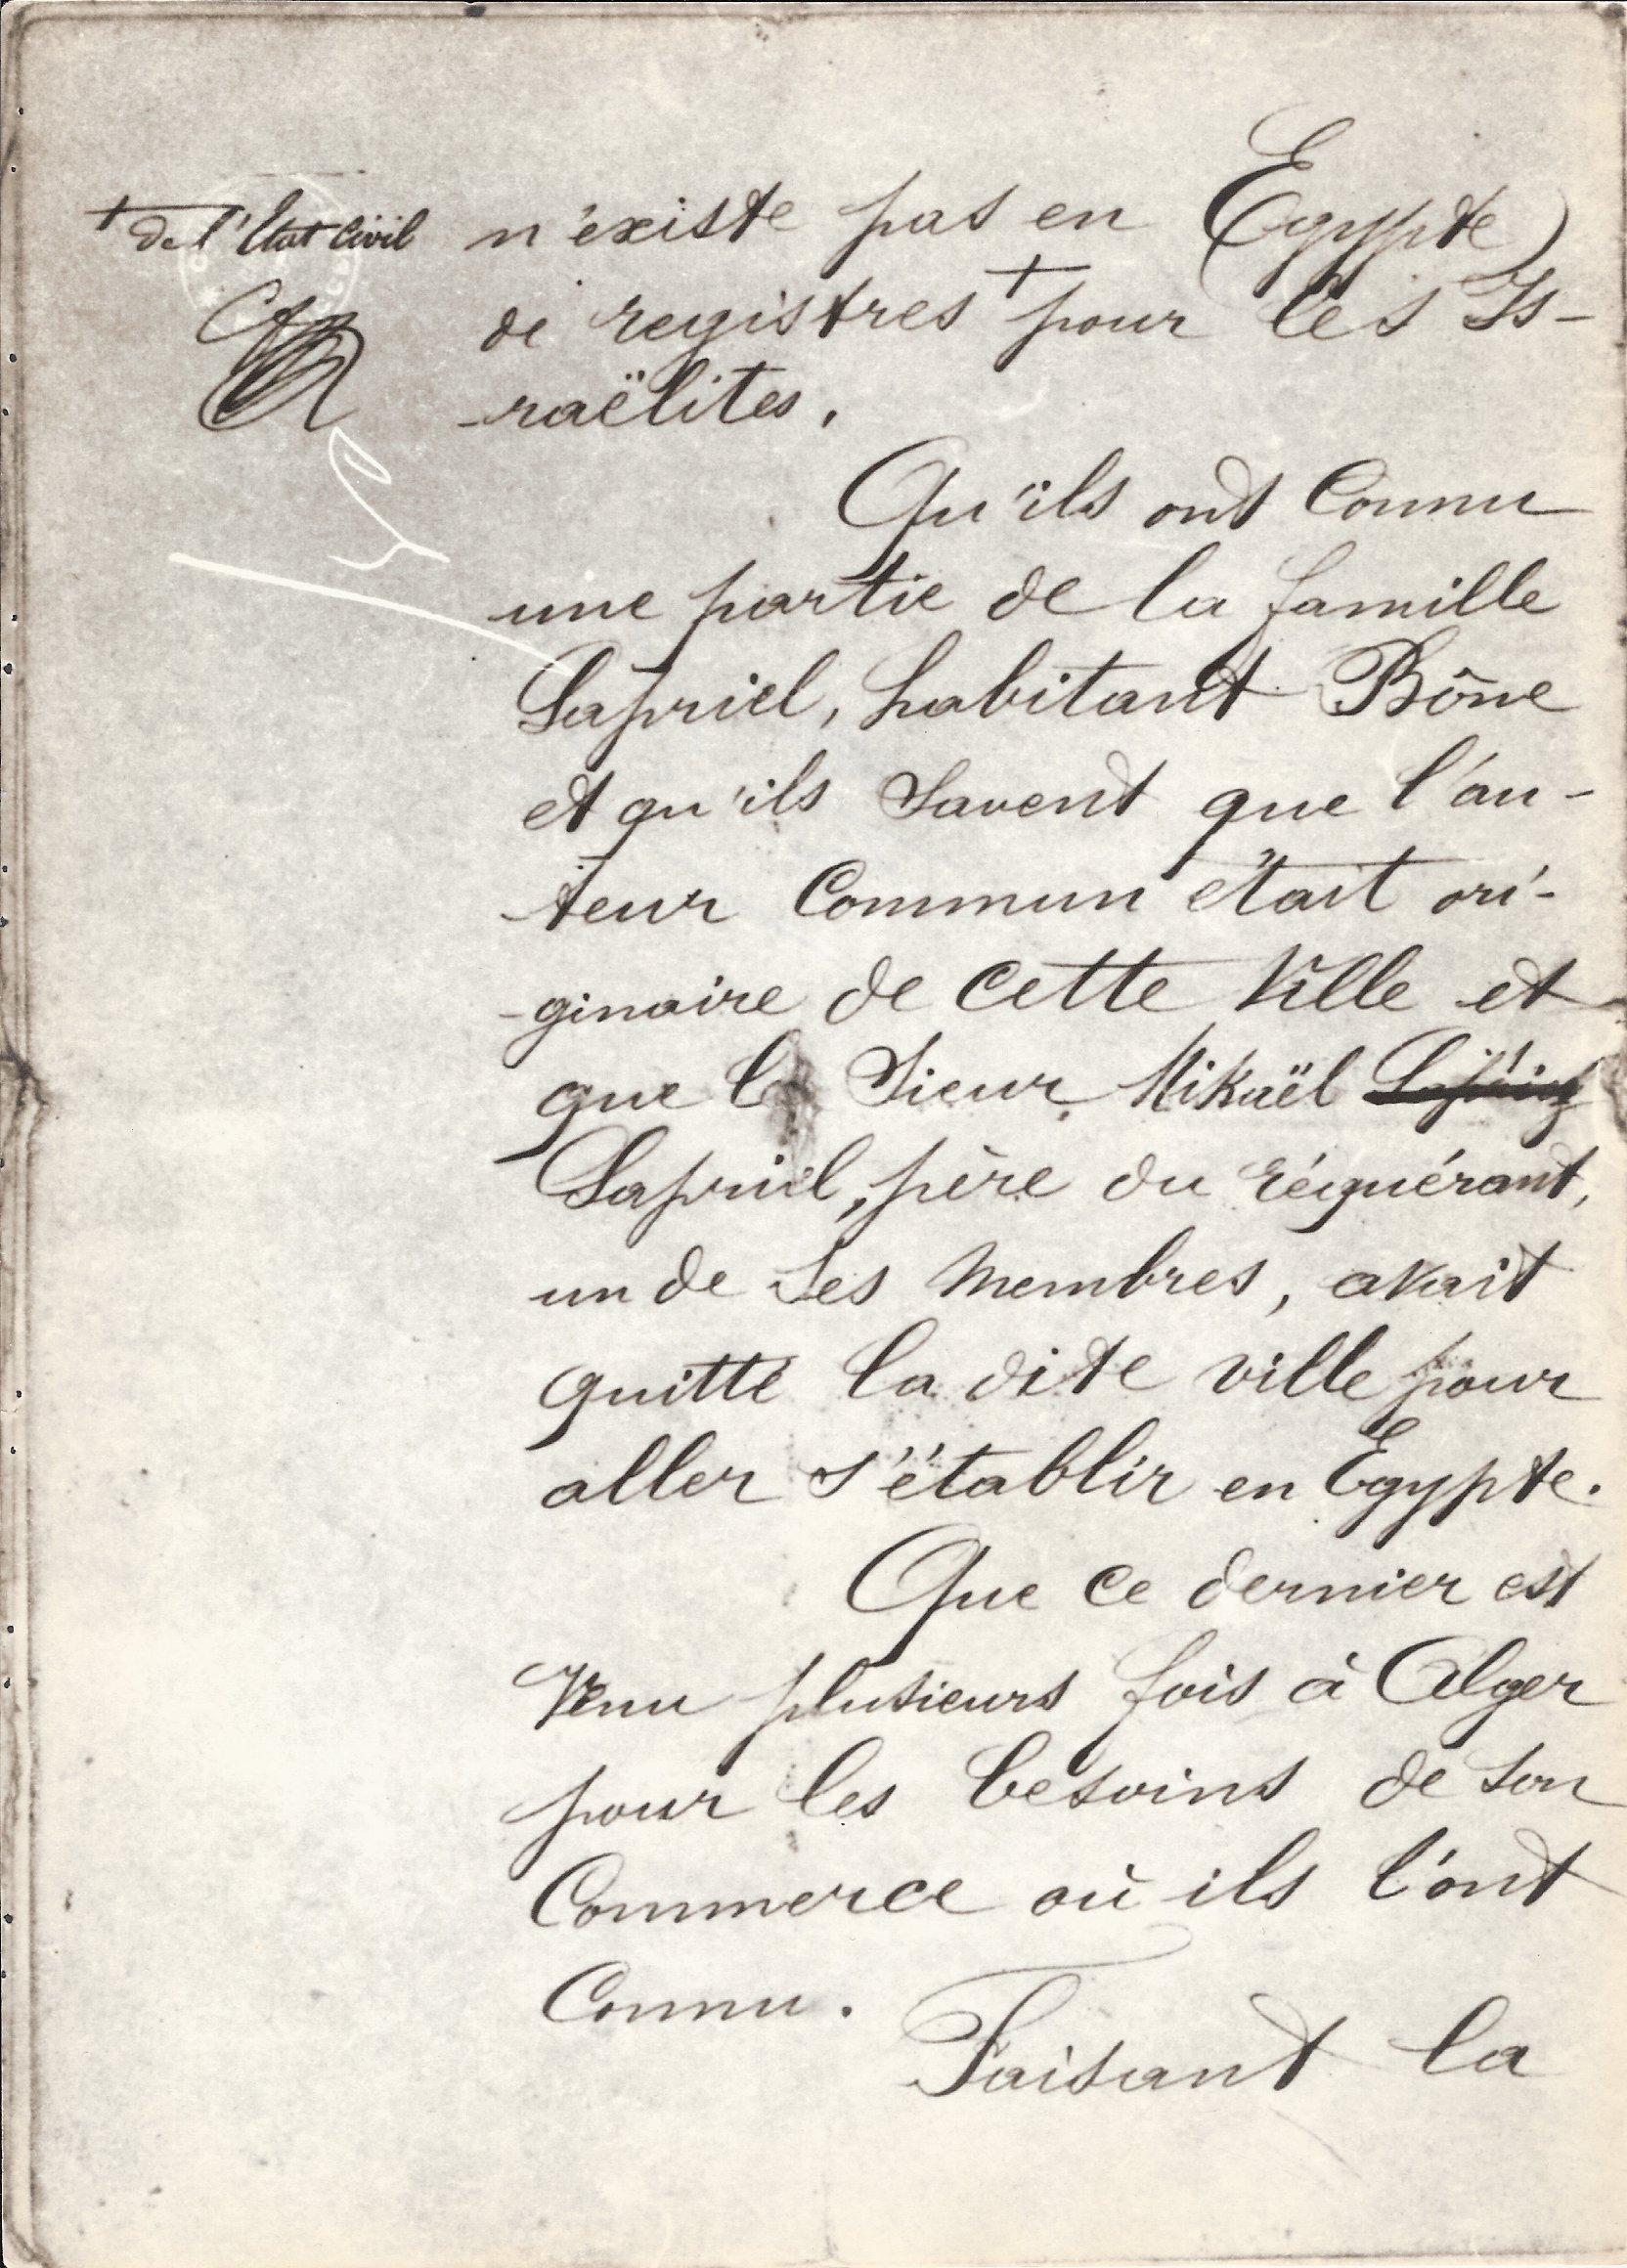 + de l'Etat Civil
n'existe pas en Egypte
de registres + pour les Is-
-raëlites.
Qu'ils ont Connu
une partie de la famille
Sapriel, habitant Bône
et qu'ils savent que l'au-
-teur Commun était ori-
-ginaire de cette Ville et
que le Sieur Mikaël
Sapriel, père du réquérant,
un de ses Membres, avait
quitté la dite ville pour
aller s'établir en Egypte.
Que ce dernier est
Venu plusieurs fois à Alger
pour les besoins de son
Commerce où ils l'ont
Connu.
Faisant la